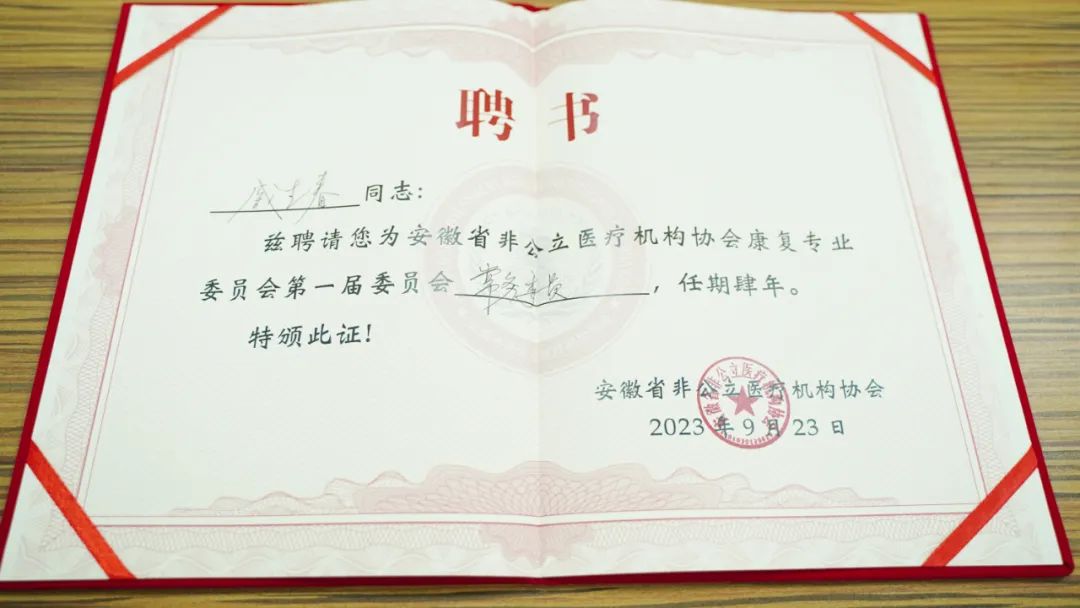 聘书
戚建春 同志：
兹聘请您为安徽省非公立医疗机构协会康复专业
委员会第一届委员会常务委员，任期肆年。
特颁此证！
安徽省非公立医疗机构协会
2023年9月23日
安徽省非公立医疗机构协会